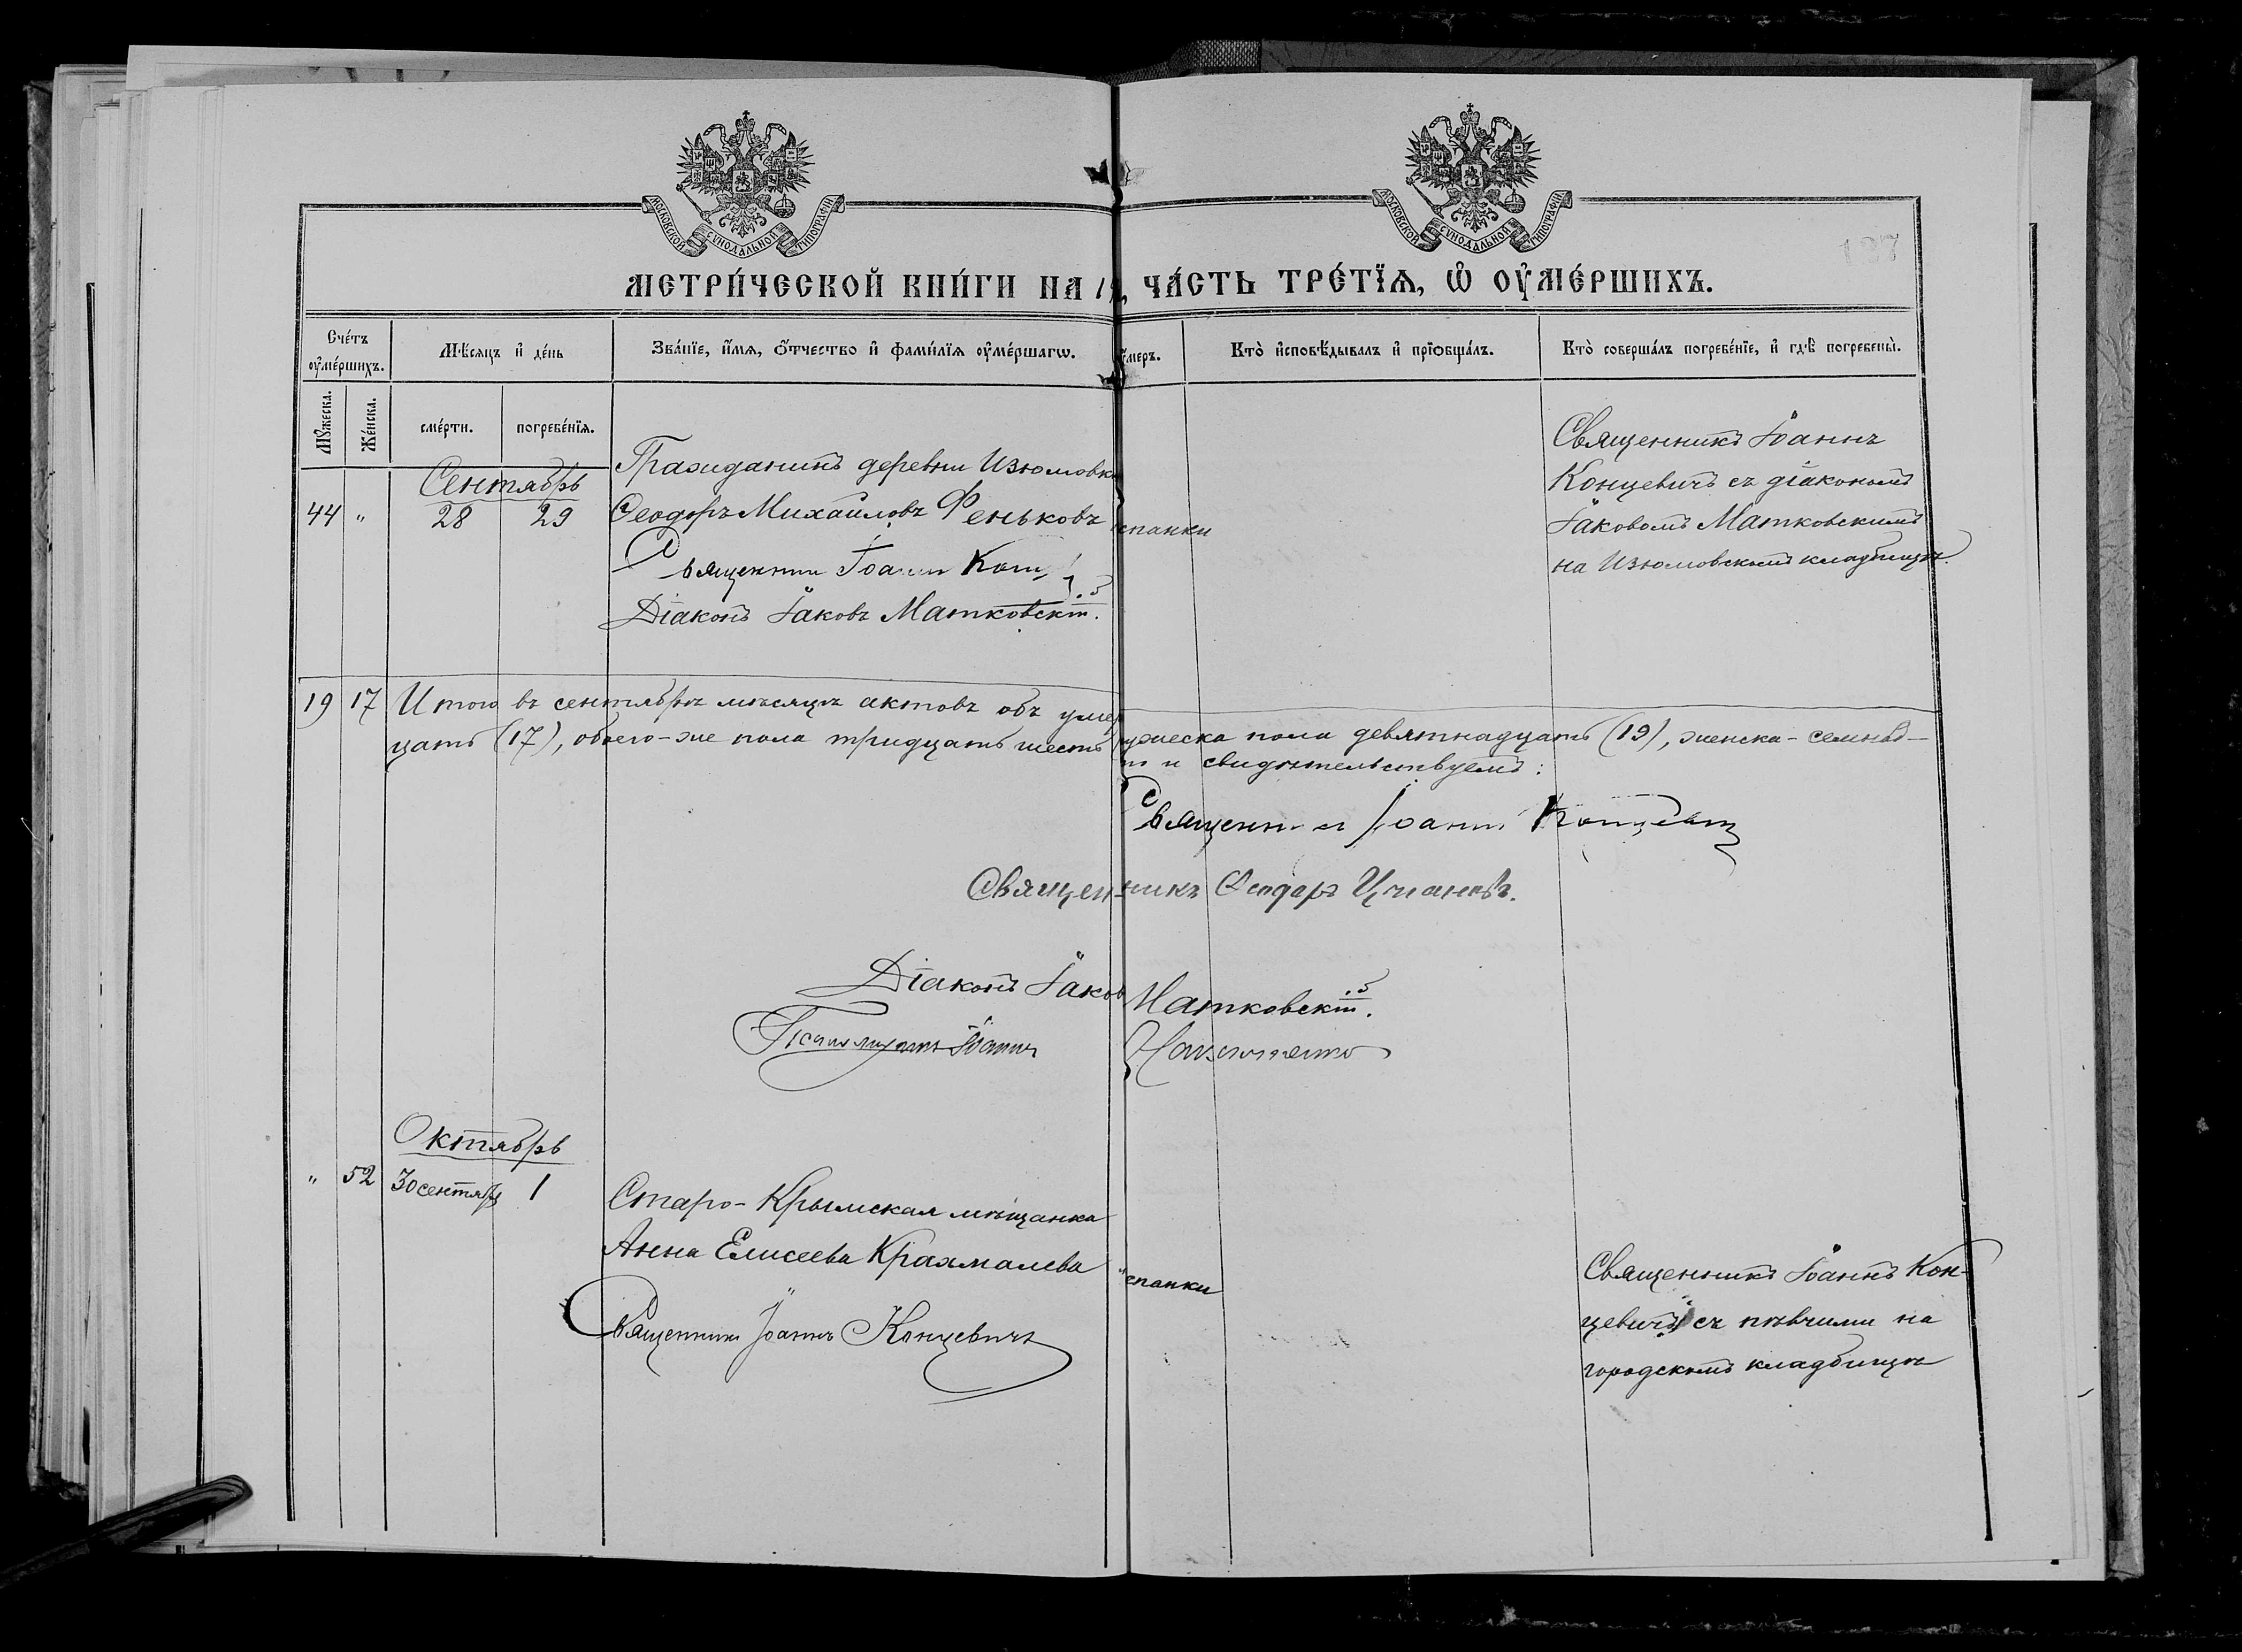 МОСКОВСКОЙ СѴНОДАЛЬНОЙ ТИПОГРАФІИ
МОСКОВСКОЙ СѴНОДАЛЬНОЙ ТИПОГРАФІИ
137
МЕТРИ́ЧЕСКОЙ КНИ́ГИ НА 19
ЧА́СТЬ ТРЕ́ТЇѦ, Ѡ҆ ОУ҆МЕ́РШИХЪ.
Сче́тъ оу҆ме́ршихъ.
Мѣ́сѧцъ и҆ де́нь
Зва́нїе, и҆́мѧ, ѻ҆́тчество и҆ фами́лїѧ оу҆ме́ршагѡ.
у҆меръ.
Кто̀ и҆сповѣ́дывалъ и҆ прїѻбща́лъ.
Кто̀ соверша́лъ погребе́нїе, и҆ гдѣ̀ погребены̀.
Мꙋ́жеска.
Же́нска.
сме́рти.
погребе́нїѧ.
Сентябрь
44 " 28 29
Гражданинъ деревни Изюмовк
Ѳеодоръ Михайловъ Феньковъ
Священник Іоанн
Діаконъ Іаковъ Матковскій.
спанки
Священникъ Іоаннъ
Концевичъ съ діакономъ
Іаковомъ Матковскимъ
на Изюмовскомъ кладбищѣ.
19 17 Итого въ сентябрѣ мѣсяцѣ актовъ объ умер
ужеска пола девятнадцать (19), женска - семнад-
цать (17), обоего-же пола тридцать шесть
и свидѣтельствуемъ:
Священник Іоанн Концевич
Священникъ Ѳеодоръ
Діаконъ Іаков Матковскій.
Псаломщикъ Іоаннъ
Октябрь
" 52 30 сентяб 1
Старо-Крымская мѣщанка
Анна Елисеева Крахмалева
Священникъ Іоаннъ Концевичъ
спанки
Священникъ Іоаннъ Кон-
цевичъ съ пѣвчими на
городскомъ кладбищѣ